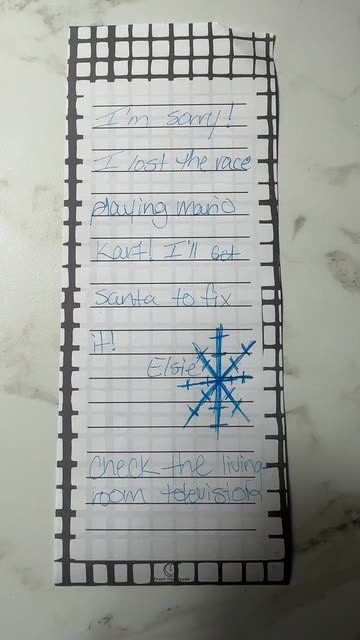 I'm sorry!
I lost the race
playing mario
Kart! I'll get
santa to fix
it!
Elsie
Check the living
room television